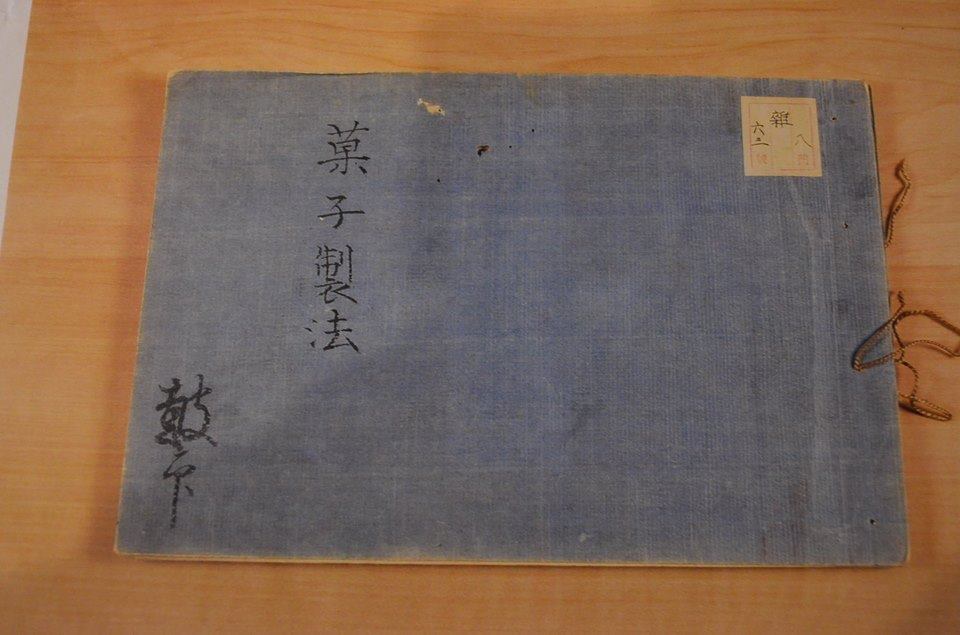 雜
八門
六二號
菓子製法